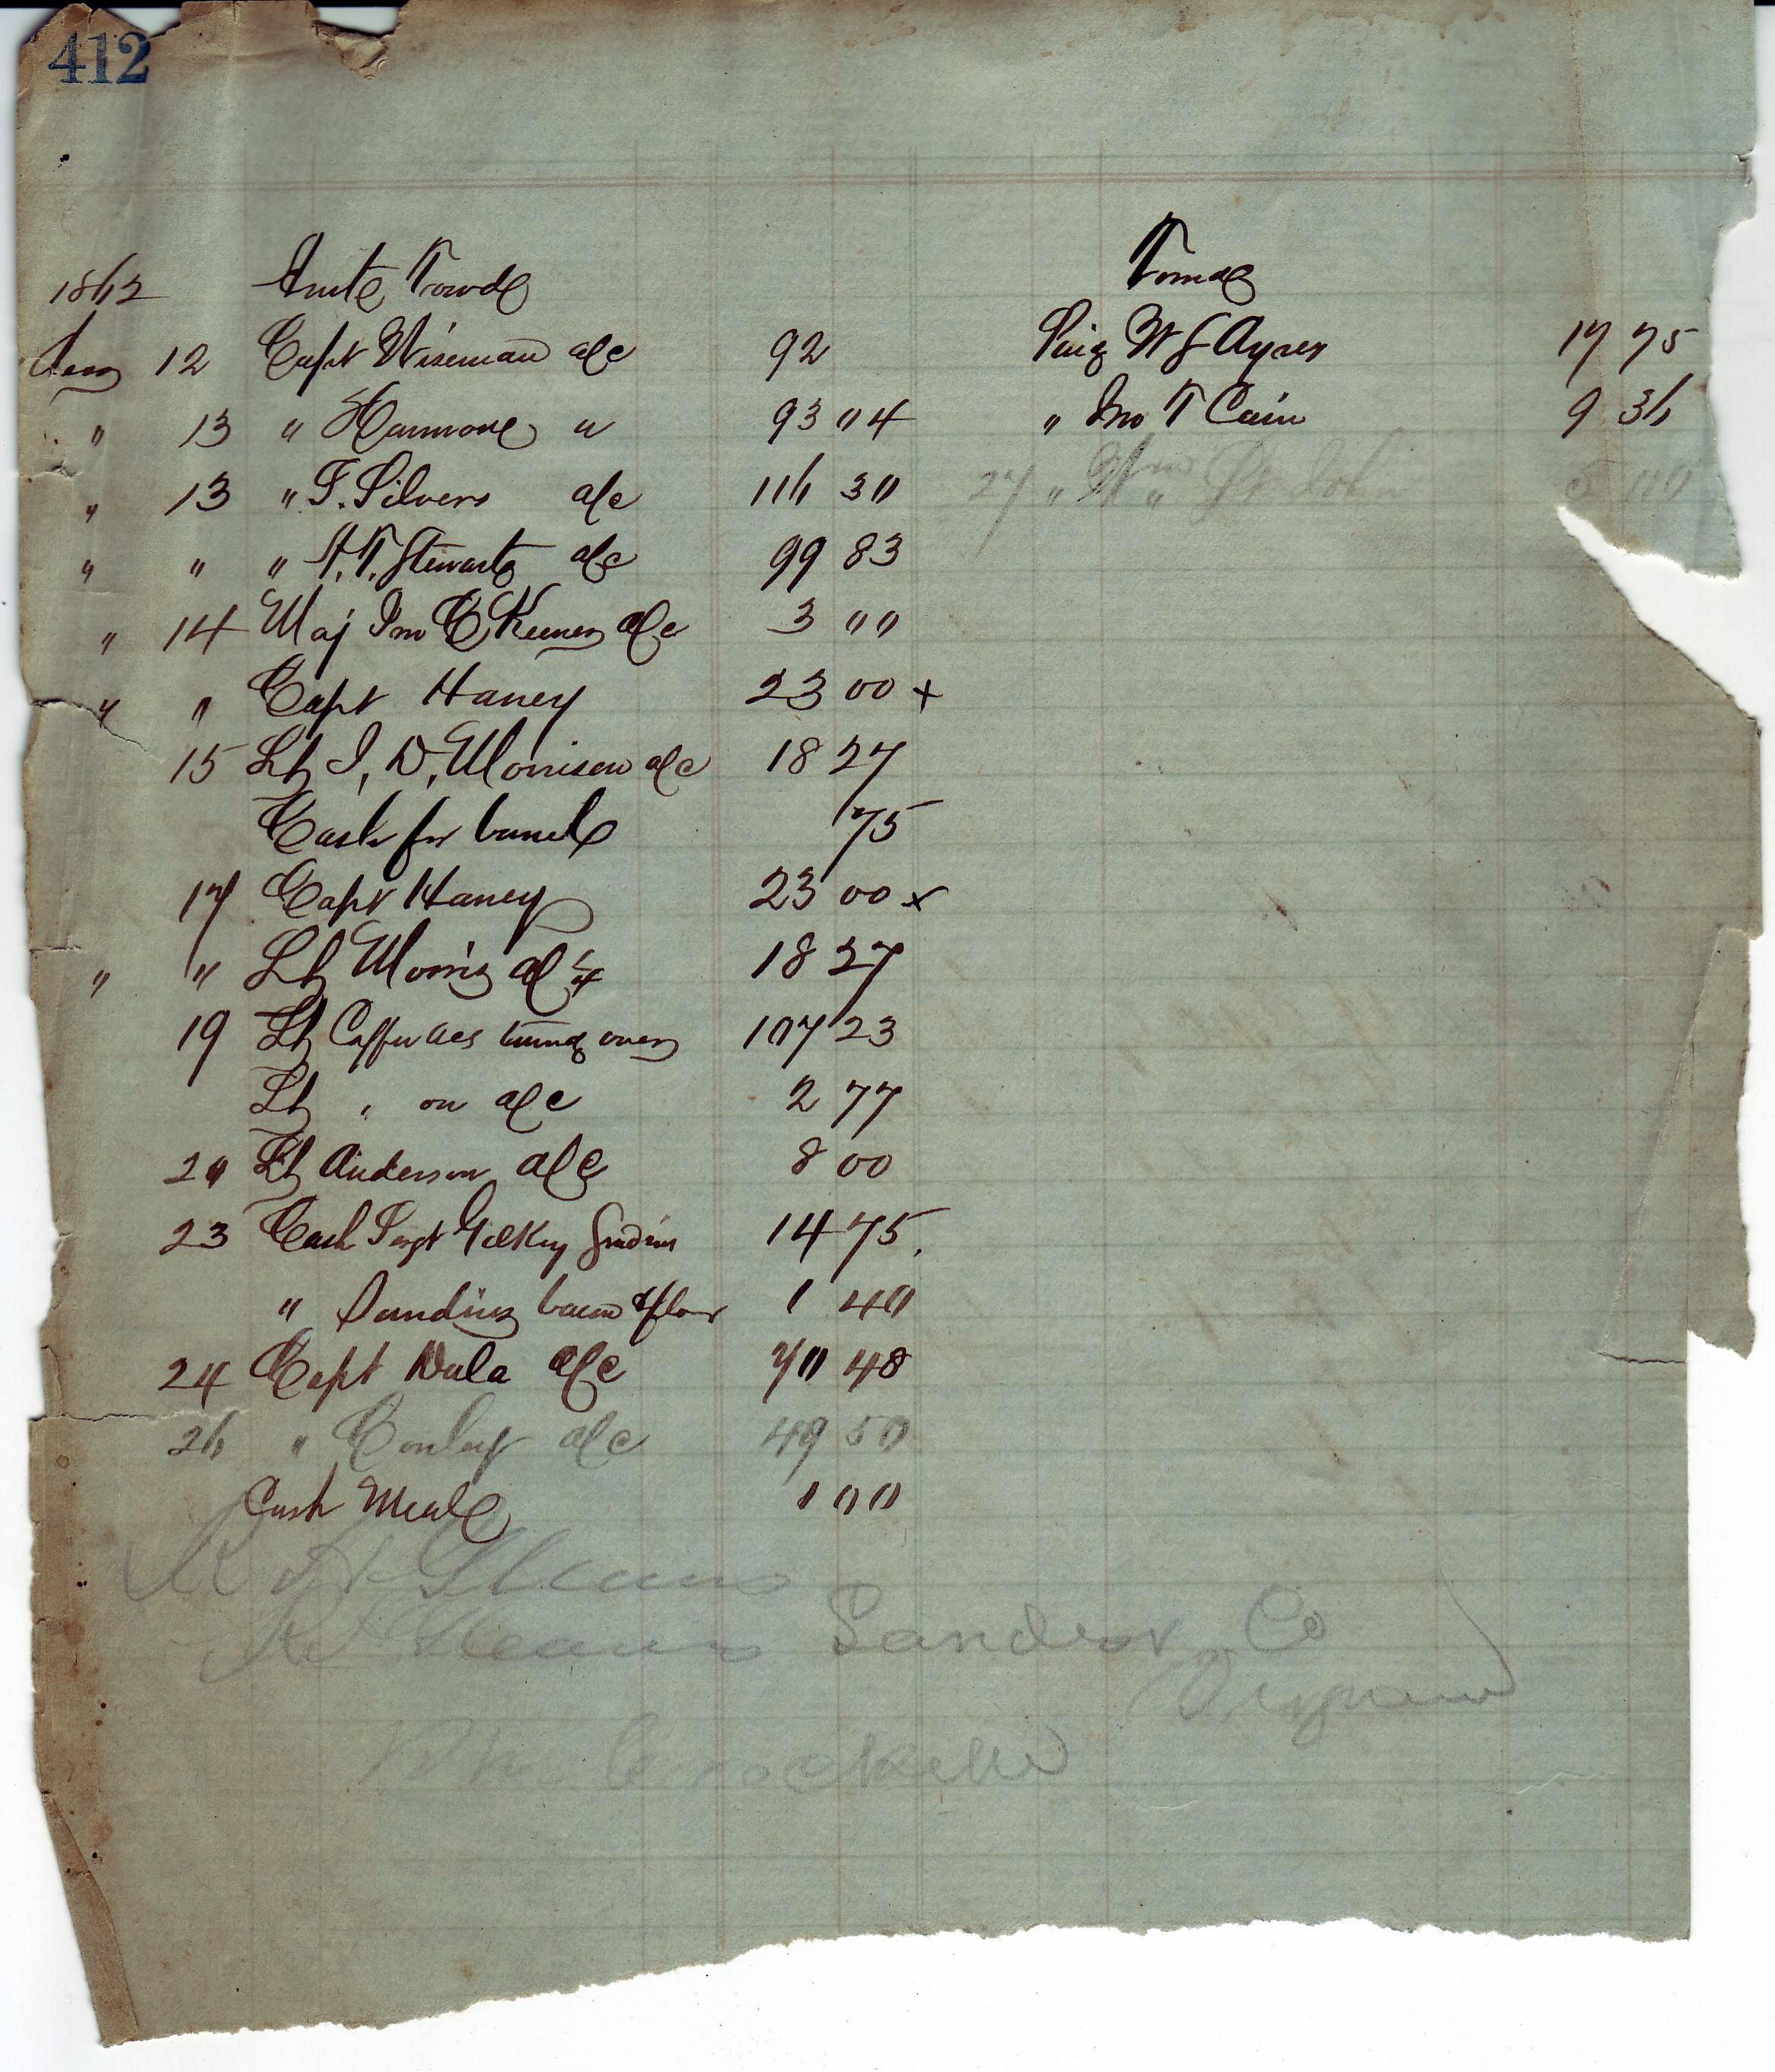 412
1862
Aug 12 Capt Wiseman a/c 92
" 13 " a 93 04
" 13 " F. Silvers a/c 116 30
" " " A. T. Stewart a/c 99 83
" 14 Maj Jno C Keener a/c 3 00
" " Capt Haney 23 00 +
15 Lt J. D. Morrison a/c 18 27
Cash for barrel 75
17 Capt Haney 23 00 x
" " Lt Morris a/c 18 27
19 Lt over 107 23
Lt " on a/c 2 77
20 Lt Anderson a/c 8 00
23 Cash Sergt Gilkey 14 75
" Sundries bacon & flour 1 40
24 Capt Dula a/c 70 48
26 " Conley a/c 49 50
Cash Meal 1 00
Paid W G Ayres 17 75
" Jno T Cain 9 36
27 " Wm St John 5 00
R H Gleaves
R H Gleaves Sanders Co